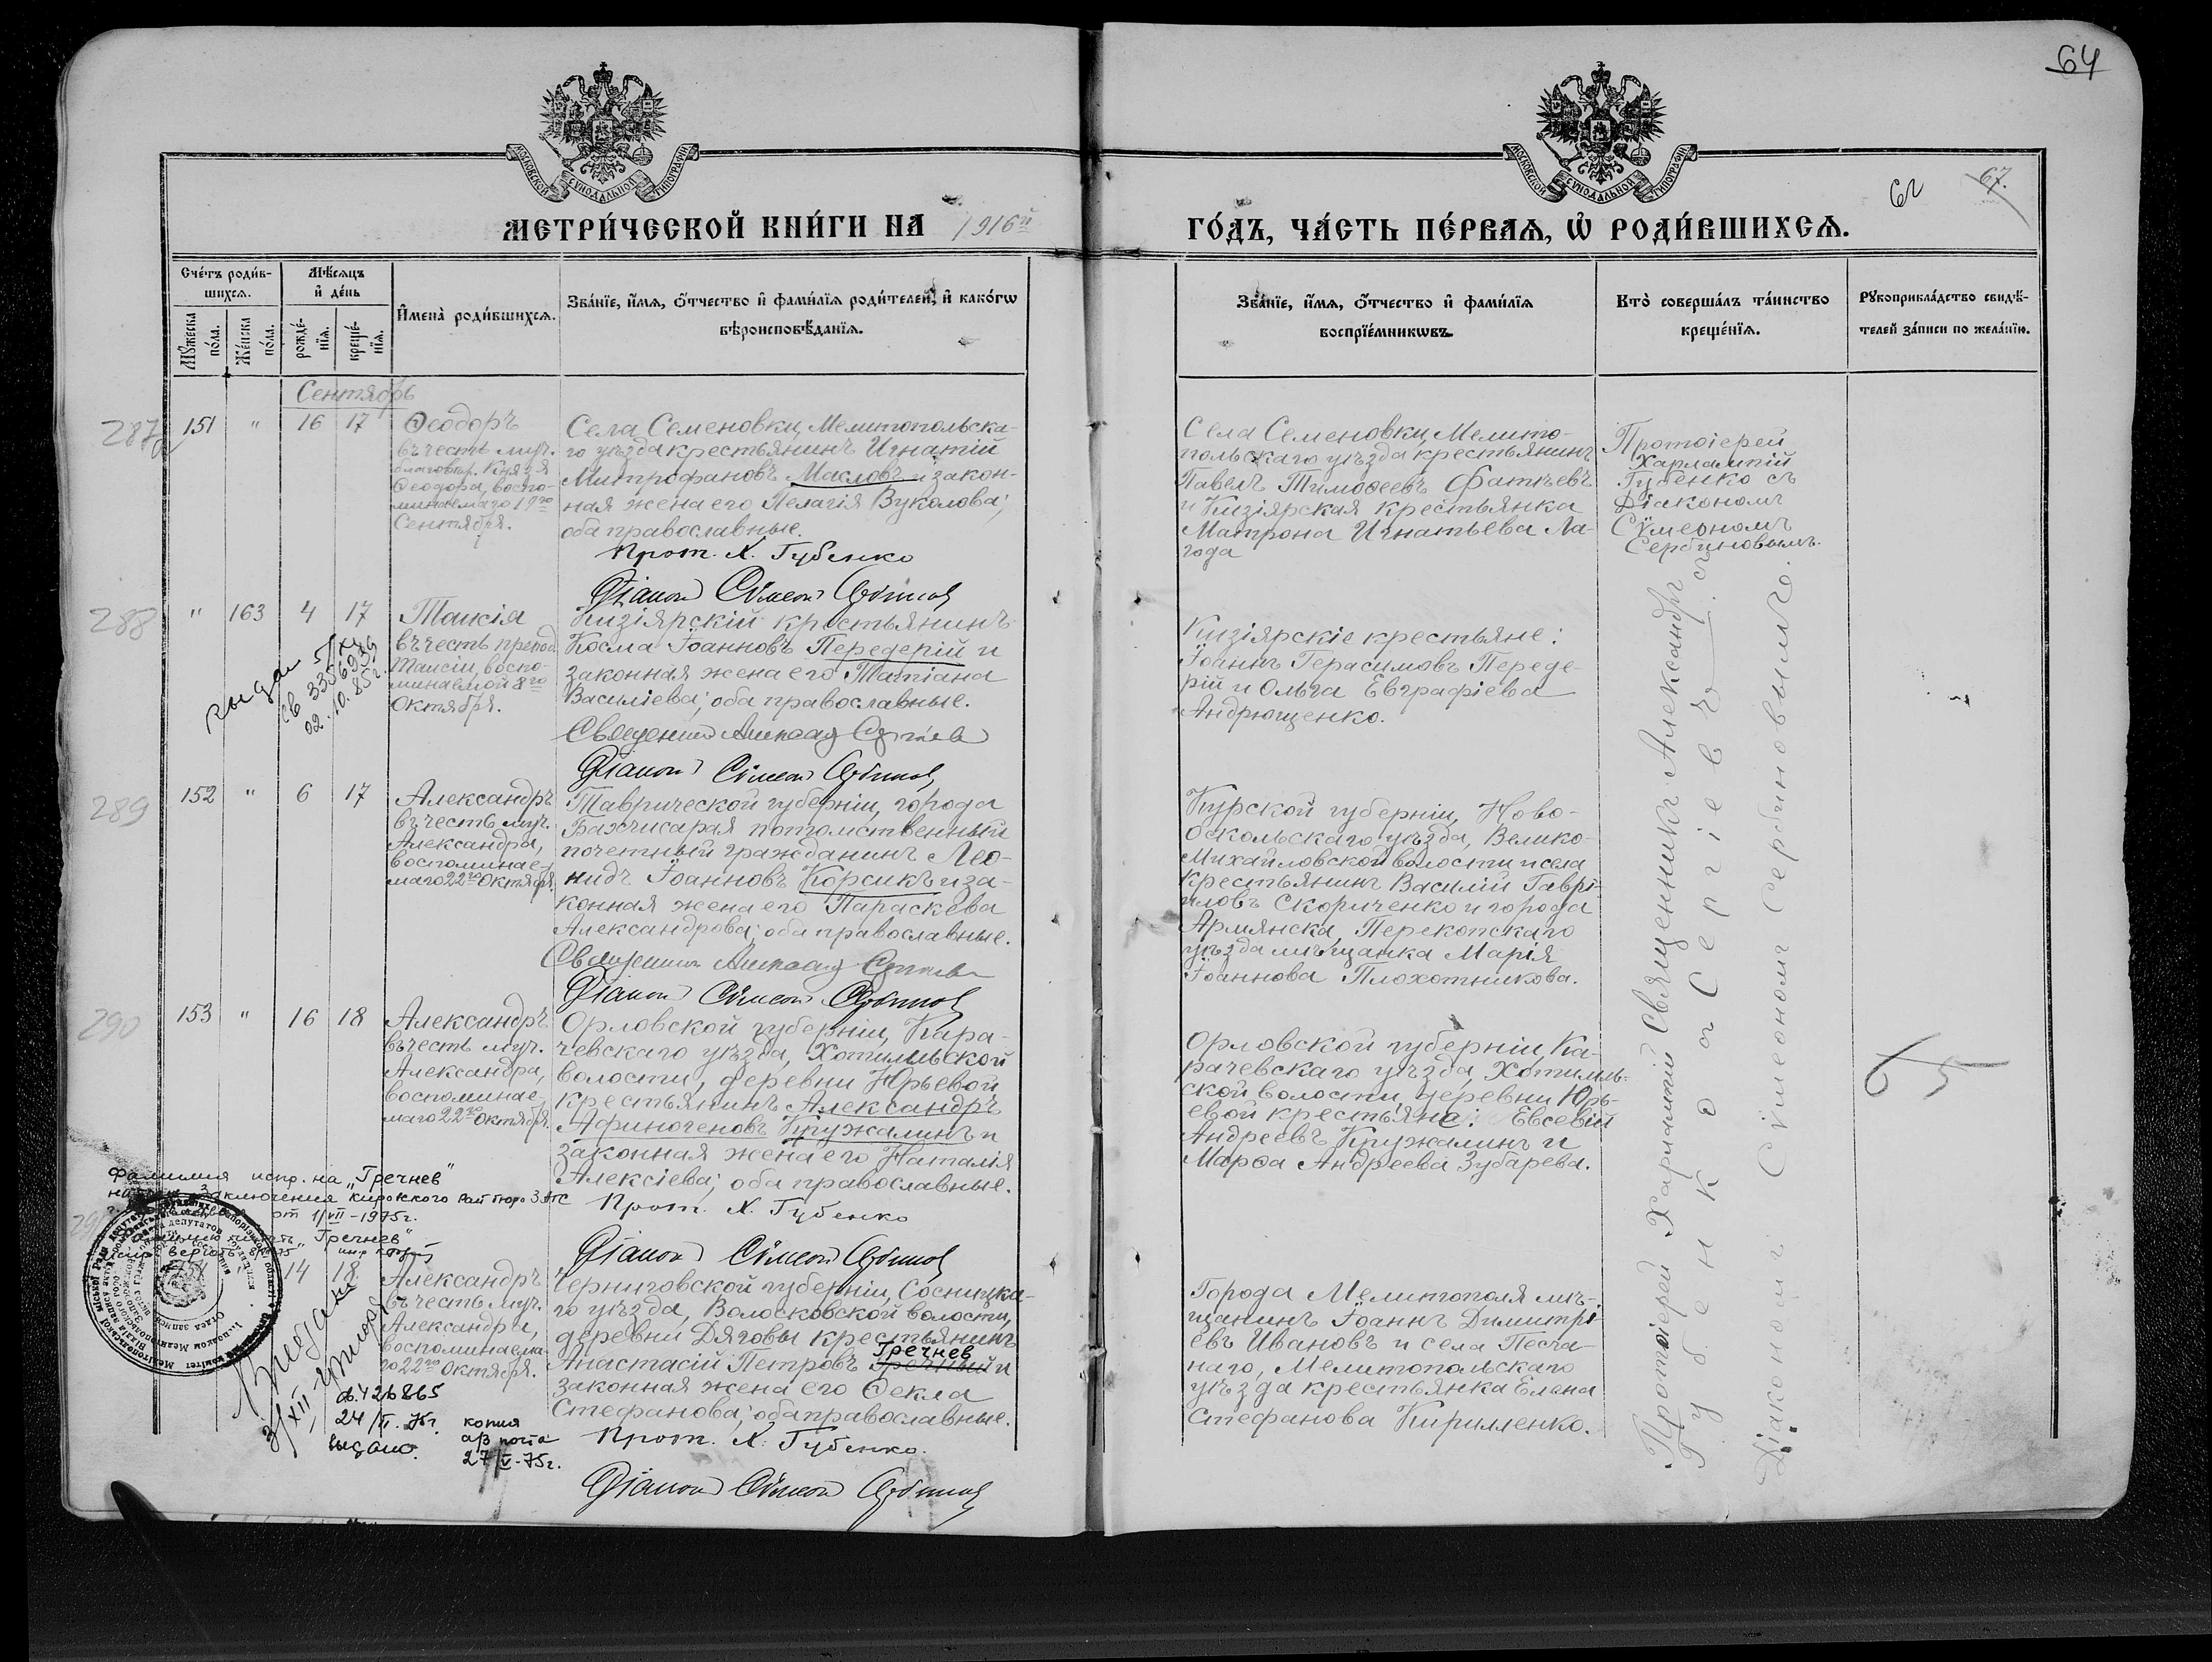 64
МОСКОВСКОЙ СѴНОДАЛЬНОЙ ТИПОГРАФІИ
МОСКОВСКОЙ СѴНОДАЛЬНОЙ ТИПОГРАФІИ
67.
МЕТРИ́ЧЕСКОЙ КНИ́ГИ НА 1916й
ГО́ДЪ, ЧА́СТЬ ПЕ́РВАѦ, Ѡ҆ РОДИ́ВШИХСѦ.
Сче́тъ роди́в-
шихсѧ.
Мѣ́сѧцъ
и҆ де́нь
Му́жеска
по́ла.
Же́нска
по́ла.
рожде́-
нїѧ.
креще́-
нїѧ.
И҆мена̀ роди́вшихсѧ.
Зва́нїе, и҆́мѧ, ѻ҆́тчество и҆ фами́лїѧ роди́телей, и҆ како́гѡ
вѣроисповѣ́данїѧ.
Зва́нїе, и҆́мѧ, ѻ҆́тчество и҆ фами́лїѧ
воспрїе́мникѡвъ.
Кто̀ соверша́лъ та́инство
креще́нїѧ.
Рꙋкоприкла́дство свидѣ́-
телей за́писи по жела́нїю.
Сентябрь
287
151 " 16 17
Ѳеодоръ
въ честь муч.
благовѣр. Князя
Ѳеодора, воспо-
минаемаго 19го
Сентября.
Села Семеновки, Мелитопольска-
го уѣзда крестьянинъ Игнатій
Митрофановъ Масловъ и закон-
ная жена его Пелагія Вуколова;
оба православные.
Прот. Х. Губенко
Діаконъ Сѵмеонъ Сербиновъ
Села Семеновки, Мелито-
польскаго уѣзда крестьянинъ
Павелъ Тимоѳеевъ Фатѣевъ
и Кизіярская крестьянка
Матрона Игнатьева Ла-
года
Протоіерей
Харлампій
Губенко съ
Діакономъ
Сѵмеономъ
Сербиновымъ.
288
" 163 4 17
Таисія
въ честь препод.
Таисіи, воспо-
минаемой 8го
Октября.
Кизіярскій крестьянинъ
Косма Іоанновъ Передерій и
законная жена его Татіана
Василіева; оба православные.
Священникъ Александръ Сергіевъ
Діаконъ Сѵмеонъ Сербиновъ
02.10.85г.
Кизіярскіе крестьяне:
Іоаннъ Герасимовъ Переде-
рій и Ольга Евграфіева
Андрющенко.
289
152 " 6 17
Александръ
въ честь муч.
Александра,
воспоминае-
маго 22го Октября.
Таврической губерніи, города
Бахчисарая потомственный
почетный гражданинъ Лео-
нидъ Іоанновъ Корсикъ и за-
конная жена его Параскева
Александрова; оба православные.
Священникъ Александръ Сергіевъ
Діаконъ Сѵмеонъ Сербиновъ
Курской губерніи, Ново-
Оскольскаго уѣзда, Велико-
Михайловской волости и села
крестьянинъ Василій Гаврі-
иловъ Скориченко и города
Армянска, Перекопскаго
уѣзда мѣщанка Марія
Іоаннова Плохотникова.
290
153 " 16 18
Александръ
въ честь муч.
Александра,
воспоминае-
маго 22го Октября.
Орловской губерніи, Кара-
чевскаго уѣзда, Хотимльской
волости, деревни Юрьевой
крестьянинъ Александръ
Афиногеновъ Кружалинъ и
законная жена его Наталія
Алексіева; оба православные.
Прот. Х. Губенко
Діаконъ Сѵмеонъ Сербиновъ
Орловской губерніи Ка-
рачевскаго уѣзда, Хотимль-
ской волости, деревни Юрь-
евой крестьяне: Евсевій
Андреевъ Кружалинъ и
Марѳа Андреева Зубарева.
65
фамилия испр. на „Гречнев"
заключения
от 1/VII-1975г.
14 18
Александръ
въ честь муч.
Александра,
воспоминаема-
го 22го Октября.
Черниговской губерніи, Сосницка-
го уѣзда, Волосковской волости,
деревни Дяговы крестьянинъ
Гречнев
Анастасій Петровъ и
законная жена его Ѳекла
Стефанова; оба православные.
Прот. Х. Губенко.
Діаконъ Сѵмеонъ Сербиновъ
24/II.75г.
выдано.
копия
а/з
27/V-75г.
Города Мелитополя мѣ-
щанинъ Іоаннъ Димитрі-
евъ Ивановъ и села Песча-
наго, Мелитопольскаго
уѣзда крестьянка Елена
Стефанова Кириленко.
Протоіерей Харлампій Священникъ Александръ
Губенко и Сергіевъ съ
Діакономъ Сѵмеономъ Сербиновымъ.